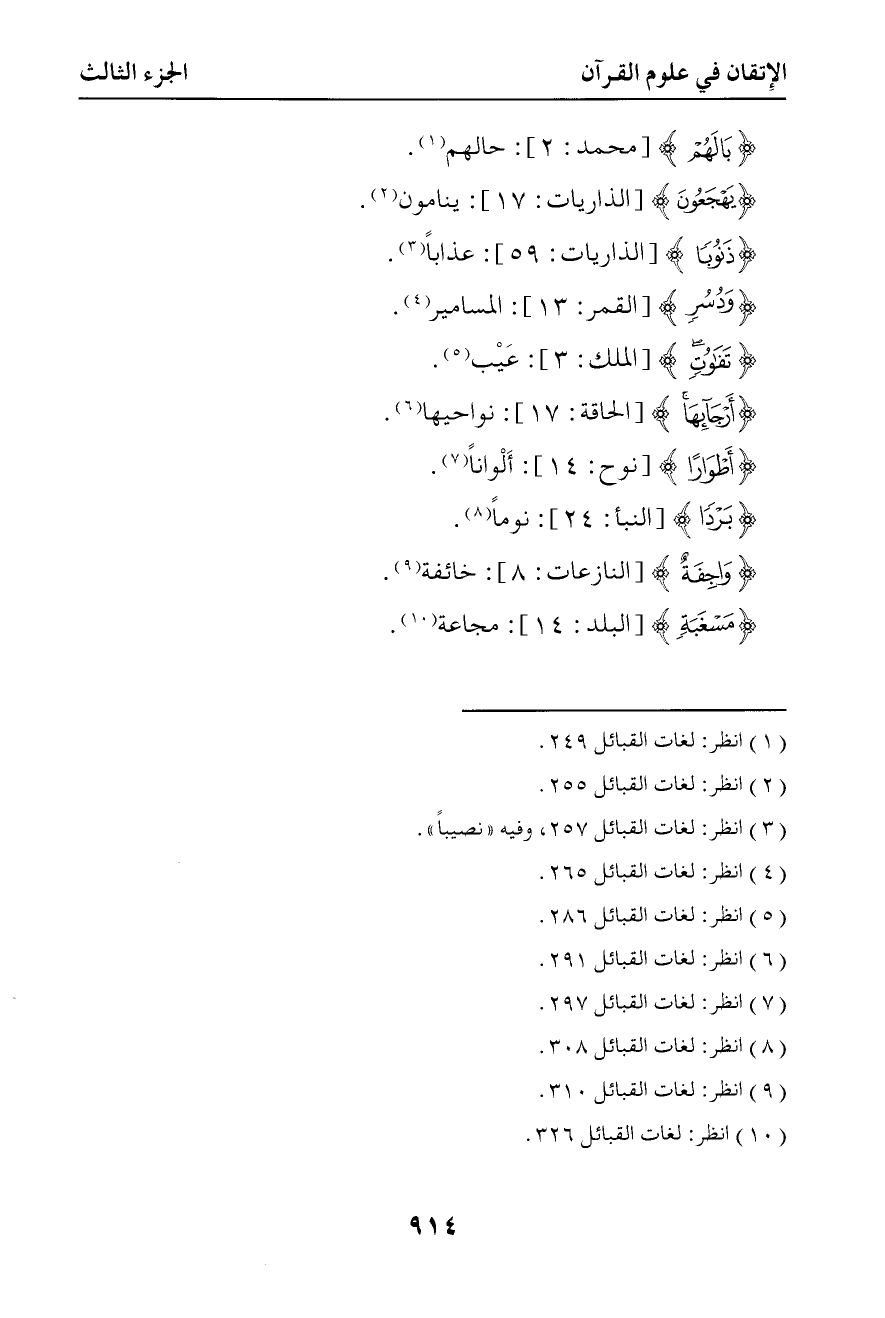 الإتقان في علوم القرآن الجزء الثالث
﴿بَالَهُمْ﴾ [محمد: ٢]: حالهم(١).
﴿يَهْجَعُونَ﴾ [الذاريات: ١٧]: ينامون(٢).
﴿ذَنُوبًا﴾ [الذاريات: ٥٩]: عذاباً(٣).
﴿وَدُسُرٍ﴾ [القمر: ١٣]: المسامير(٤).
﴿تَفَٰوُتٍۖ﴾ [الملك: ٣]: عَيْب(٥).
﴿أَرْجَآئِهَاۚ﴾ [الحاقة: ١٧]: نواحيها(٦).
﴿أَطْوَارًا﴾ [نوح: ١٤]: أَلْواناً(٧).
﴿بَرْدًا﴾ [النبأ: ٢٤]: نوماً(٨).
﴿وَاجِفَةٌ﴾ [النازعات: ٨]: خائفة(٩).
﴿مَسْغَبَةٍ﴾ [البلد: ١٤]: مجاعة(١٠).
(١) انظر: لغات القبائل ٢٤٩.
(٢) انظر: لغات القبائل ٢٥٥.
(٣) انظر: لغات القبائل ٢٥٧، وفيه «نصيباً».
(٤) انظر: لغات القبائل ٢٦٥.
(٥) انظر: لغات القبائل ٢٨٦.
(٦) انظر: لغات القبائل ٢٩١.
(٧) انظر: لغات القبائل ٢٩٧.
(٨) انظر: لغات القبائل ٣٠٨.
(٩) انظر: لغات القبائل ٣١٠.
(١٠) انظر: لغات القبائل ٣٢٦.
٩١٤